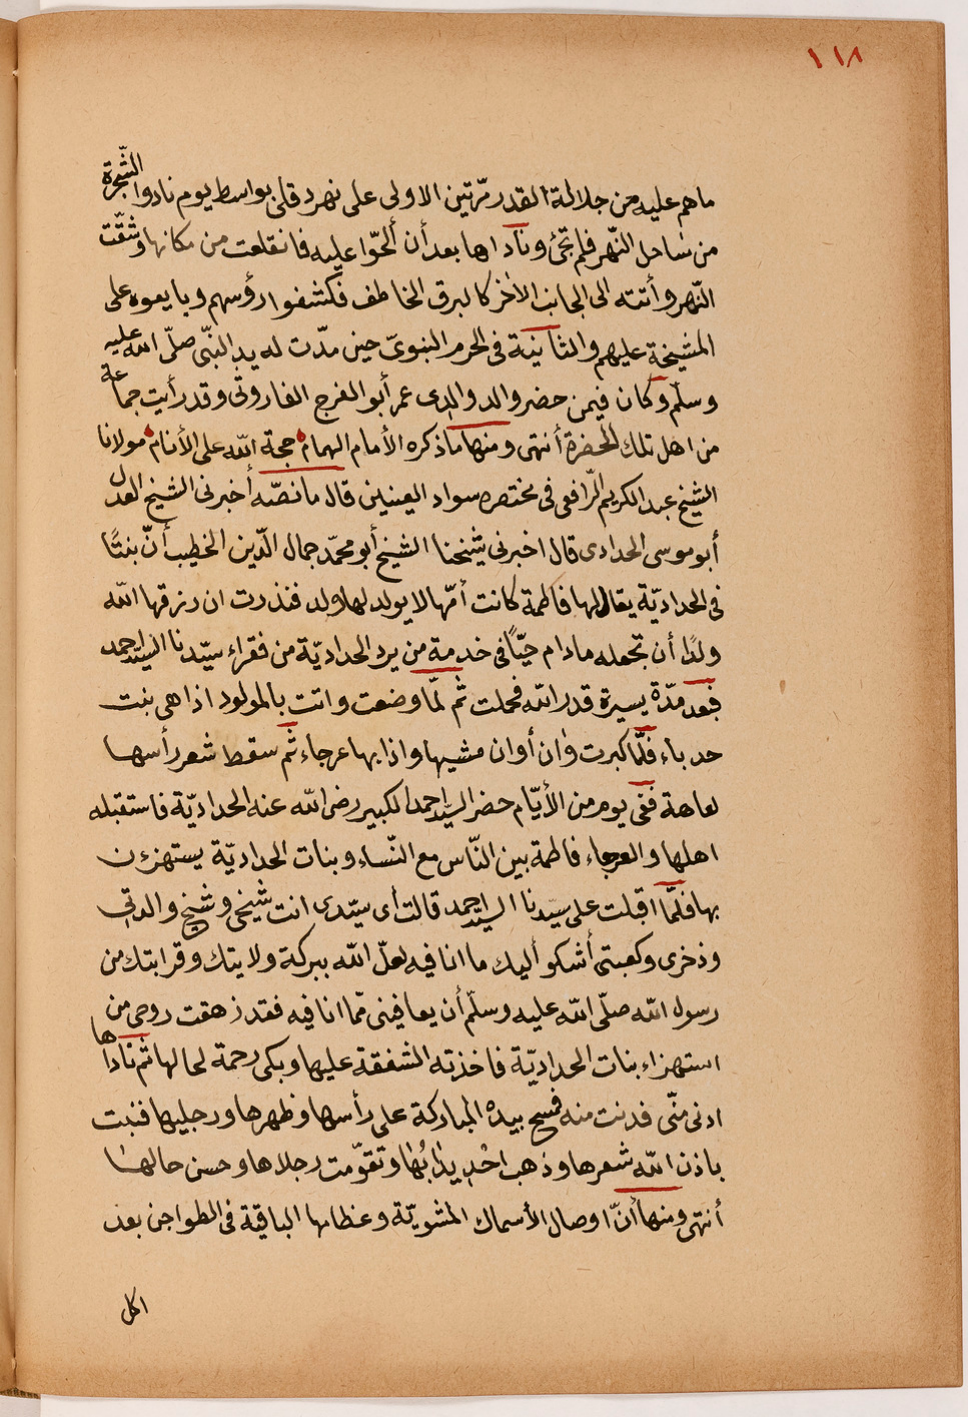 ١١٨
ما هم عليه من جلالة القدر مرّتين الاولى على نهر دقلى بواسط يوم نادوا الشّجرة
من ساحل النّهر فلم تجئ وناداها بعد أن ألحّوا عليه فانقلعت من مكانها وشقّت
النّهر وأتته الى الجانب الاٰخر كالبرق الخاطف فكشفوا رؤسهم وبايعوه على
المشيخة عليهم والثانية فى الحرم النبوىّ حين مدّت له يد النبّى صلّى الله عليه
وسلّم وكان فيمن حضر والد والدى عمر أبو الفرج الفاروثى وقد رأيت جماعة
من اهل تلك الحضرة أنتهى ومنها ما ذكره الأمام الهمام حجة الله على الأنام مولانا
الشيخ عبد الكريم الرّافعى فى مختصره سواد العينين قال ما نصّه أخبرنى الشيخ العدل
أبو موسى الحدادى قال اخبرنى شيخنا الشيخ أبو محمّد جمال الدّين الخطيب أنّ بنتًا
فى الحداديّة يقال لها فاطمة كانت أمّها لا يولد لها ولد فنذرت ان رزقها الله
ولدًا أن تجعله مادام حيّاً فى خدمة من يرد الحداديّة من فقراء سيّدنا السيّد احمد
فبعد مدّة يسيرة قدر الله فحملت ثم لمّا وضعت واتت بالمولود اذا هى بنت
حدباء فلمّا كبرت واٰن أوان مشيها واذا بها عرجاء ثم سقط شعر رأسها
لعاهة ففى يوم من الأيّام حضر السيّد احمد الكبير رضى الله عنه الحداديّة فاستقبله
اهلها والعرجاء فاطمة بين النّاس مع النّساء وبنات الحداديّة يستهزءن
بها فلمّا اقبلت على سيّدنا السيّد احمد قالت أى سيّدى انت شيخى وشيخ والدتى
وذخرى وكعبتى أشكو أليك ما انا فيه لعلّ الله ببركة ولايتك وقرابتك من
رسول الله صلّى الله عليه وسلّم أن يعافينى ممّا انا فيه فقد زهقت روحى من
استهزاء بنات الحداديّة فاخذته الشفقة عليها وبكى رحمة لحالها ثم ناداها
ادنى منّى فدنت منه فمسح بيده المباركة على رأسها وظهرها ورجليها فنبت
باذن الله شعرها وذهب احْدِيدَابُهَا وتقوّمت رجلاها وحسن حالها
أنتهى ومنها أنّ اوصال الأسماك المشويّة وعظامها الباقية فى الطواجن بعد
اكل